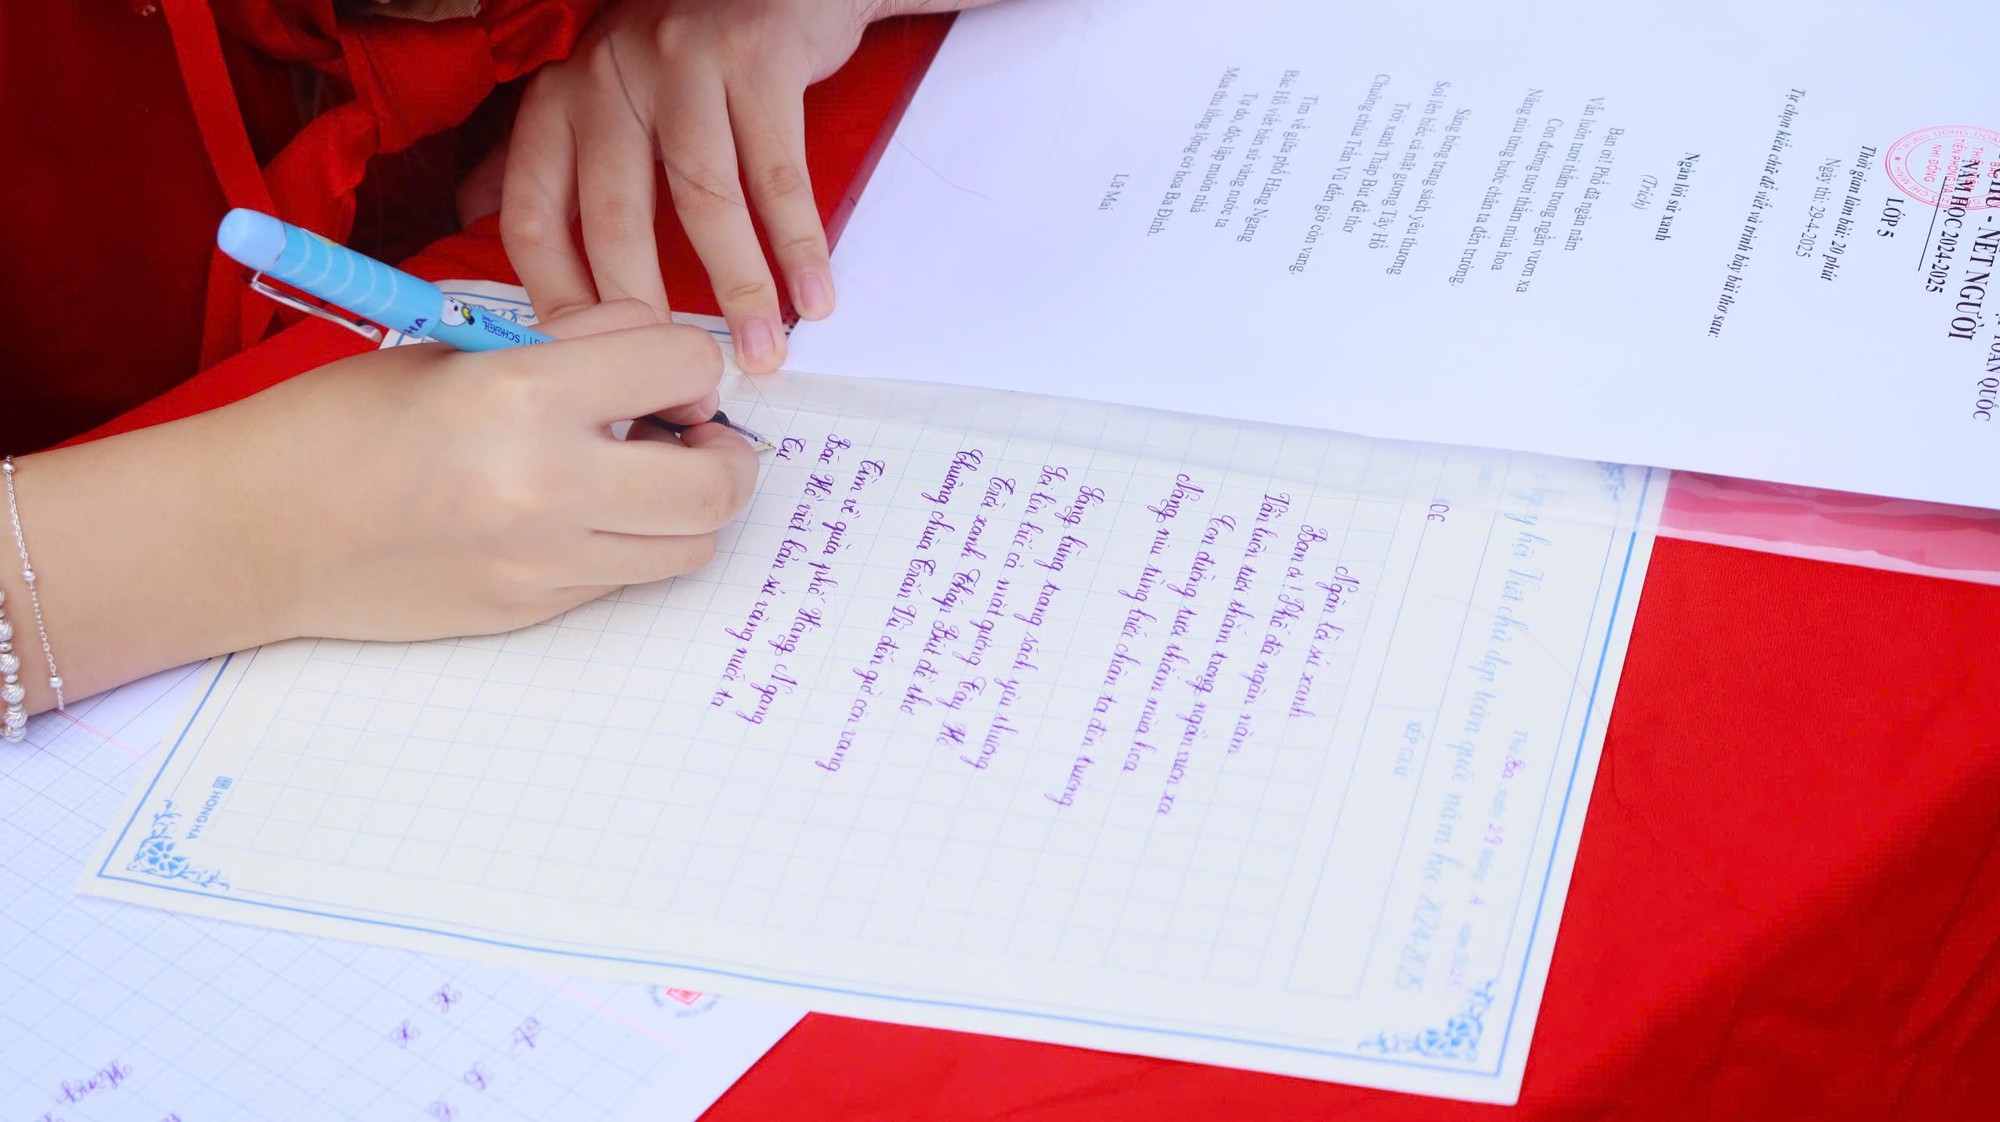 TOÀN QUỐC
NÉT NGƯỜI
NĂM HỌC 2024-2025
LỚP 5
Thời gian làm bài: 20 phút
Ngày thi: 29-4-2025
Tự chọn kiểu chữ để viết và trình bày bài thơ sau:
Ngàn lời sử xanh
(Trích)
Bạn ơi! Phố đã ngàn năm
Vẫn luôn tươi thắm trong ngần vươn xa
Con đường tươi thắm mùa hoa
Nâng niu từng bước chân ta đến trường.
Sáng bừng trang sách yêu thương
Soi lên biếc cả mặt gương Tây Hồ
Trời xanh Tháp Bút đề thơ
Chuông chùa Trấn Vũ đến giờ còn vang.
Tìm về giữa phố Hàng Ngang
Bác Hồ viết bản sử vàng nước ta
Tự do, độc lập muôn nhà
Mùa thu lồng lộng cờ hoa Ba Đình.
Lữ Mai
Thứ Ba ngày 29 tháng 4 năm 2025
hội Viết chữ đẹp toàn quốc năm học 2024-2025
106
XẾP GIẢI
Ngàn lời sử xanh
Bạn ơi! Phố đã ngàn năm
Vẫn luôn tươi thắm trong ngần vươn xa
Con đường tươi thắm mùa hoa
Nâng niu từng bước chân ta đến trường
Sáng bừng trang sách yêu thương
Soi lên biếc cả mặt gương Tây Hồ
Trời xanh Tháp Bút đề thơ
Chuông chùa Trấn Vũ đến giờ còn vang
Tìm về giữa phố Hàng Ngang
Bác Hồ viết bản sử vàng nước ta
Tự
HONG HA
SCHOOL
Hồng